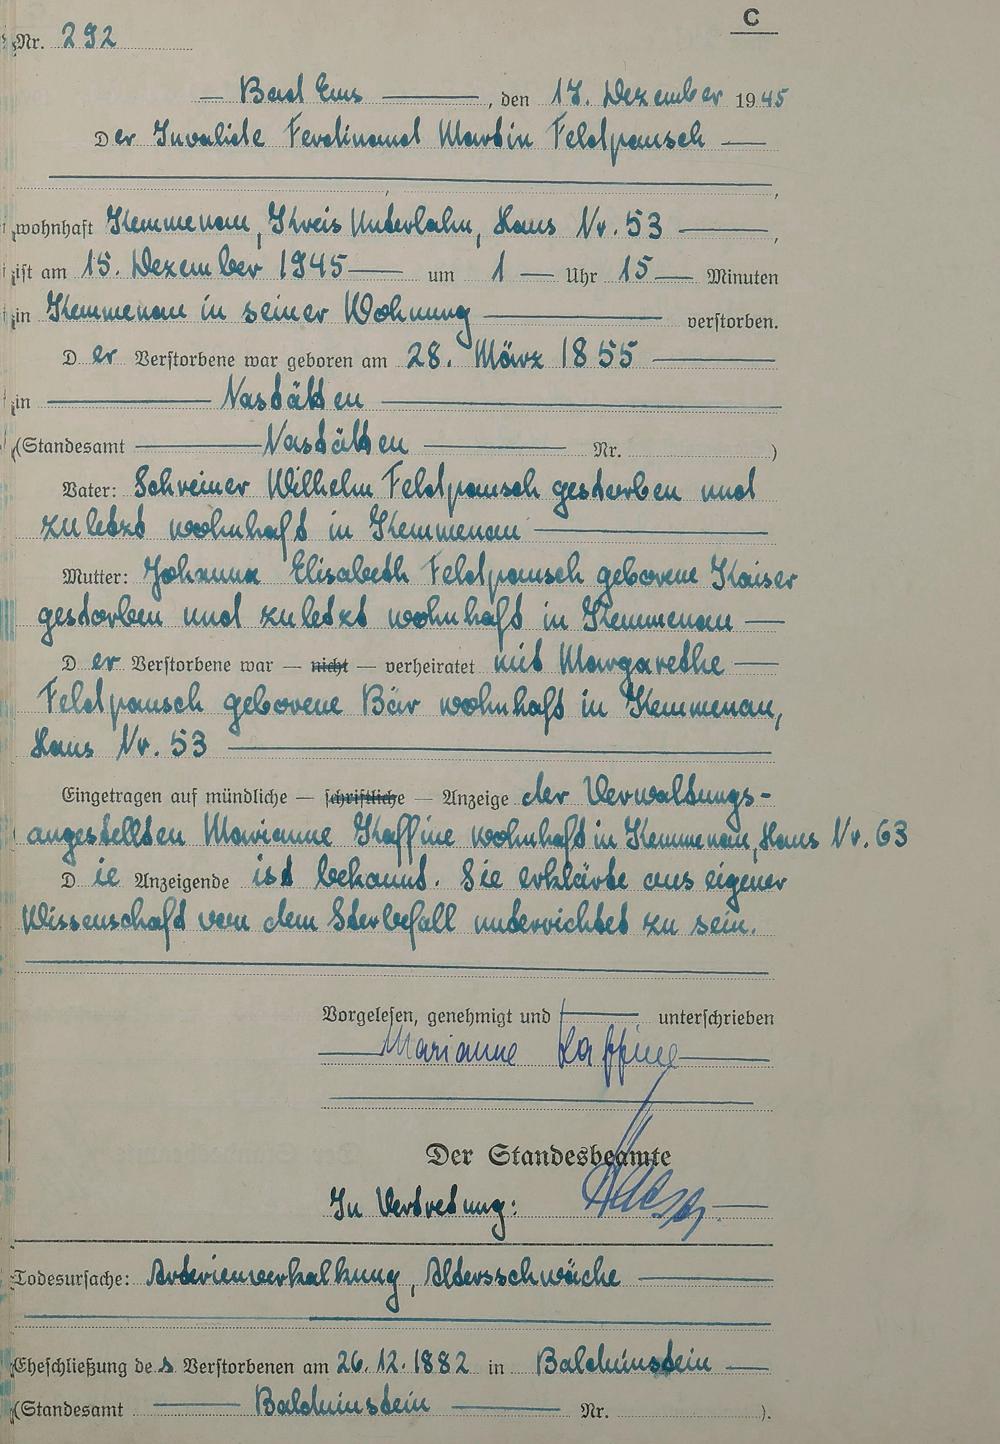 C
Nr. 292
Bad Ems, den 17. Dezember 1945
Der Invalide Ferdinand Martin Feldpausch
wohnhaft Kemmenau, Kreis Unterlahn, Haus Nr. 53,
ist am 15. Dezember 1945 um 1 Uhr 15 Minuten
in Kemmenau in seiner Wohnung verstorben.
Der Verstorbene war geboren am 28. März 1855
in Nastätten
(Standesamt Nastätten Nr. )
Vater: Schreiner Wilhelm Feldpausch gestorben und
zuletzt wohnhaft in Kemmenau
Mutter: Johanna Elisabeth Feldpausch geborene Kaiser
gestorben und zuletzt wohnhaft in Kemmenau
Der Verstorbene war — nicht — verheiratet mit Margarethe
Feldpausch geborene Bär wohnhaft in Kemmenau,
Haus Nr. 53
Eingetragen auf mündliche — schriftliche — Anzeige der Verwaltungs-
angestellten Marianne Kaffine wohnhaft in Kemmenau, Haus Nr. 63
Die Anzeigende ist bekannt. Sie erklärte aus eigener
Wissenschaft von dem Sterbefall unterrichtet zu sein.
Vorgelesen, genehmigt und unterschrieben
Marianne Kaffine
Der Standesbeamte
In Vertretung:
Todesursache: Arterienverkalkung, Altersschwäche
Eheschließung des Verstorbenen am 26.12.1882 in Balduinstein
(Standesamt Balduinstein Nr. ).